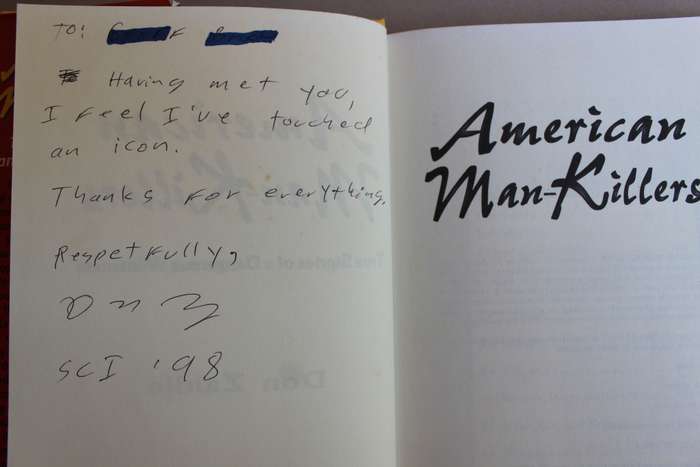 TO:
Having met you,
I feel I've touched
an icon.
Thanks for everything.
Respetfully,
SCI '98
American
Man-Killers